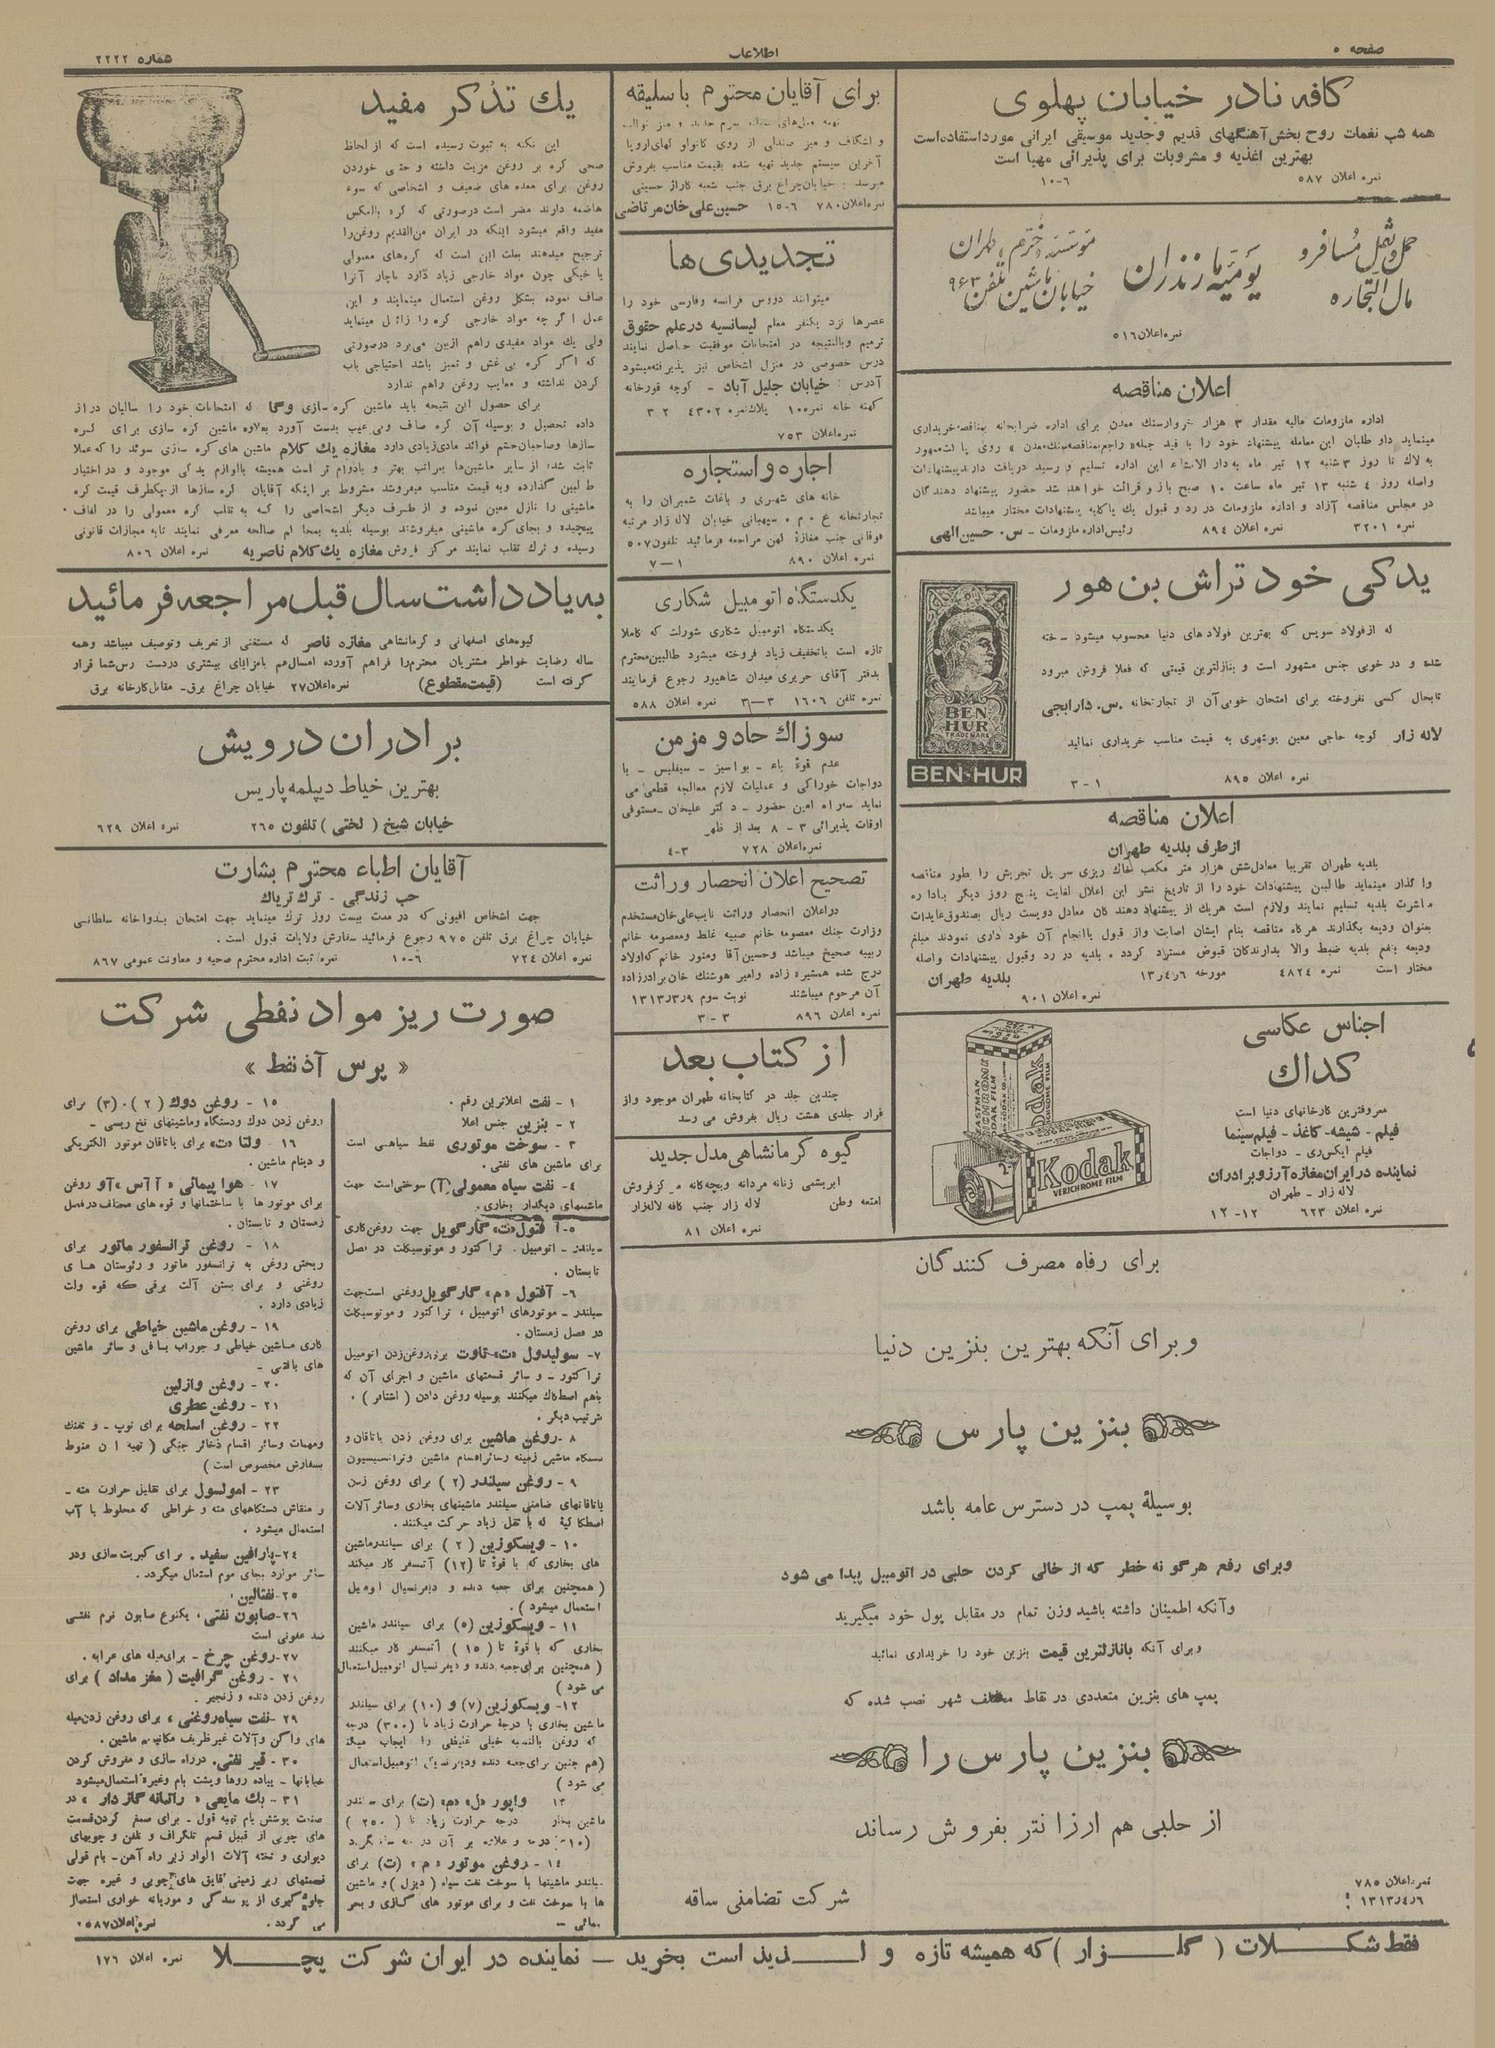 صفحه ۵
اطلاعات
شماره ۲۲۲۲
کافه نادر خیابان پهلوی
همه شب نغمات روح بخش آهنگهای قدیم وجدید موسیقی ایرانی مورد استفاده است
بهترین اغذیه و مشروبات برای پذیرائی مهیا است
نمره اعلان ۵۸۷
۱۰-۶
حمل و نقل مسافر و
مال التجاره
یومیه مازندران
خیابان ماشین تلفن ۹۶۳
نمره اعلان ۵۱۶
اعلان مناقصه
اداره ملزومات مالیه مقدار ۳ هزار خروار سنگ معدن برای اداره ضرابخانه بمناقصه خریداری
مینماید داوطلبان این معامله پیشنهاد خود را با قید جمله «راجع بمناقصه سنگ معدن» روی پاکت ممهور
به لاک تا روز ۳ شنبه ۱۲ تیر ماه بدار الانشاء این اداره تسلیم و رسید دریافت دارند پیشنهادات
واصله روز ۴ شنبه ۱۳ تیر ماه ساعت ۱۰ صبح باز و قرائت خواهد شد حضور پیشنهاد دهندگان
در مجلس مناقصه آزاد و اداره ملزومات در رد و قبول یک یا کلیه پیشنهادات مختار میباشد
نمره ۳۲۰۱
نمره اعلان ۸۹۴
رئیس اداره ملزومات - س. حسین الهی
یدکی خود تراش بن هور
که از فولاد سویس که بهترین فولاد های دنیا محسوب میشود ساخته
شده و در خوبی جنس مشهور است و بنازلترین قیمتی که فعلا فروش میرود
تابحال کسی نفروخته برای امتحان خوبی آن از تجارتخانه س. دارابجی
لاله زار کوچه حاجی معین بوشهری به قیمت مناسب خریداری نمائید
نمره اعلان ۸۹۵
۳-۱
BEN
HUR
TRADE MARK
BEN-HUR
اعلان مناقصه
از طرف بلدیه طهران
بلدیه طهران تقریبا معادل شش هزار متر مکعب خاک ریزی سر پل تجریش را بطور مناقصه
واگذار مینماید طالبین پیشنهادات خود را از تاریخ نشر این اعلان لغایت پنج روز دیگر باداره
مباشرت بلدیه تسلیم نمایند ولازم است هریک از پیشنهاد دهندگان معادل دویست ریال بصندوق عایدات
بعنوان ودیعه بگذارند هرگاه مناقصه بنام ایشان اصابت واز قبول یا انجام آن خود داری نمودند مبلغ
ودیعه بنفع بلدیه ضبط والا بدارندگان قبوض مسترد گردد. بلدیه در رد وقبول پیشنهادات واصله
مختار است
نمره ۴۸۲۴
مورخه ۱۳ر۴ر۶
بلدیه طهران
نمره اعلان ۹۰۱
اجناس عکاسی
کداک
معروفترین کارخانهای دنیا است
فیلم - شیشه - کاغذ - فیلم سینما
فیلم ایکس ری - دواجات
نماینده در ایران مغازه آرزو برادران
لاله زار - طهران
نمره اعلان ۶۲۳
۱۲-۱۲
Kodak
VERICHROME FILM
برای آقایان محترم با سلیقه
و اشکاف و میز صندلی از روی کاتولوگهای اروپا
آخرین سیستم جدید تهیه شده بقیمت مناسب بفروش
میرسد: خیابان چراغ برق جنب شعبه گاراژ حسینی
نمره اعلان ۷۸۰
۱۵-۶
حسین علی خان مرتاضی
تجدیدی ها
میتوانند دروس فرانسه وفارسی خود را
عصرها نزد یکنفر معلم لیسانسیه در علم حقوق
ترمیم وبالنتیجه در امتحانات موفقیت حاصل نمایند
درس خصوصی در منزل اشخاص نیز پذیرفته میشود
آدرس: خیابان جلیل آباد - کوچه قورخانه
کهنه خانه نمره ۱۰ پلاک نمره ۴۳۰۲
۳-۲
نمره اعلان ۷۵۳
اجاره و استجاره
خانه های شهری و باغات شمیران را به
تجارتخانه ع. م. سپهبانی خیابان لاله زار مرتبه
فوقانی جنب مغازه کهن مراجعه فرمائید تلفون ۵۰۷
نمره اعلان ۸۹۰
۷-۱
یکدستگاه اتومبیل شکاری
یکدستگاه اتومبیل شکاری شورلت که کاملا
تازه است باتخفیف زیاد فروخته میشود طالبین محترم
بدفتر آقای حریری میدان شاهپور رجوع فرمایند
نمره تلفن ۱۶۰۶
۳-۳
نمره اعلان ۵۸۸
سوزاک حاد و مزمن
عدم قوهٔ باء - بواسیر - سیفلیس - با
دواجات خوراکی و عملیات لازم معالجه قطعی می
نماید سه راه امین حضور - دکتر علیخان مستوفی
اوقات پذیرائی ۳ - ۸ بعد از ظهر
نمره اعلان ۷۲۸
۴-۳
تصحیح اعلان انحصار وراثت
در اعلان انحصار وراثت نایب علی خان مستخدم
وزارت جنگ معصومه خانم صبیه غلط ومعصومه خانم
ربیبه صحیح میباشد وحسین آقا ومنور خانم که اولاد
درج شده همشیره زاده وامیر هوشنگ خان برادر زاده
آن مرحوم میباشند
نوبت سوم ۱۳۱۳ر۳ر۹
نمره اعلان ۸۹۶
۳-۳
از کتاب بعد
چندین جلد در کتابخانه طهران موجود واز
قرار جلدی هشت ریال بفروش می رسد
گیوه کرمانشاهی مدل جدید
ابریشمی زنانه مردانه وبچه گانه مرکز فروش
امتعه وطن
لاله زار جنب کافه لاله زار
نمره اعلان ۸۱
یک تذکر مفید
این نکته به ثبوت رسیده است که از لحاظ
صحی کره بر روغن مزیت داشته و حتی خوردن
روغن برای معده های ضعیف و اشخاصی که سوء
هاضمه دارند مضر است درصورتی که کره بالعکس
مفید واقع میشود اینکه در ایران من القدیم روغن را
ترجیح میدهند بعلت این است که کره های معمولی
یا خیکی چون مواد خارجی زیاد دارد ناچار آنرا
صاف نموده بشکل روغن استعمال مینمایند و این
عمل اگر چه مواد خارجی کره را زائل مینماید
ولی یک مواد مفیدی راهم ازبین می برد درصورتی
که اگر کره بی غش و تمیز باشد احتیاجی باب
کردن نداشته و معایب روغن راهم ندارد
برای حصول این نتیجه باید ماشین کره سازی وگا که امتحانات خود را سالیان دراز
داده تحصیل و بوسیله آن کره صاف وبی عیب بدست آورد بعلاوه ماشین کره سازی برای کره
سازها وصاحبان حشم فوائد مادی زیادی دارد مغازه یک کلام ماشین های کره سازی سوئد را که عملا
ثابت شده از سایر ماشین ها بمراتب بهتر و بادوام تر است همیشه بالوازم یدکی موجود و در اختیار
طالبین گذارده وبه قیمت مناسب میفروشد مشروط بر اینکه آقایان کره سازها از یکطرف قیمت کره
ماشینی را نازل معین نموده و از طرف دیگر اشخاصی را که به تقلب کره معمولی را در لفاف
پیچیده و بجای کره ماشینی میفروشند بوسیله بلدیه بمحاکم صالحه معرفی نمایند تا به مجازات قانونی
رسیده و ترک تقلب نمایند مرکز فروش مغازه یک کلام ناصریه
نمره اعلان ۸۰۶
به یادداشت سال قبل مراجعه فرمائید
گیوه های اصفهانی و کرمانشاهی مغازه ناصر که مستغنی از تعریف وتوصیف میباشد وهمه
ساله رضایت خاطر مشتریان محترم را فراهم آورده امسال هم بامزایای بیشتری در دست رس شما قرار
گرفته است
(قیمت مقطوع)
نمره اعلان ۲۷
خیابان چراغ برق - مقابل کارخانه برق
برادران درویش
بهترین خیاط دیپلمه پاریس
خیابان شیخ (لختی) تلفون ۲۶۵
نمره اعلان ۶۲۹
آقایان اطباء محترم بشارت
حب زندگی - ترک تریاک
جهت اشخاص افیونی که در مدت بیست روز ترک مینماید جهت امتحان بدواخانه سلطانی
خیابان چراغ برق تلفن ۹۷۵ رجوع فرمائید سفارش ولایات قبول است.
نمره اعلان ۷۲۴
۱۰-۶
نمره ثبت اداره محترم صحیه و معاونت عمومی ۸۶۷
صورت ریز مواد نفطی شرکت
« پرس آذ نفط »
۱ - نفت اعلاترین رقم.
۲ - بنزین جنس اعلا
۳ - سوخت موتوری نفط سیاهی است
برای ماشین های نفتی.
۴ - نفت سیاه معمولی (آ) سوختی است جهت
ماشینهای دیگدار بخاری.
۵ - آفتول «ت» گارگویل جهت روغن کاری
سیلندر - اتومبیل. تراکتور و موتوسیکلت در فصل
تابستان.
۶ - آفتول «م» گارگویل روغنی است جهت
سیلندر - موتورهای اتومبیل، تراکتور و موتوسیکلت
در فصل زمستان.
۷ - سولیدول «ت» تاوت برای روغن زدن اتومبیل
تراکتور - و سائر قسمتهای ماشین و اجزای آن که
باهم اصطکاک میکنند بوسیله روغن دادن (اشتافر).
ترتیب دیگر.
۸ - روغن ماشین برای روغن زدن یاتاقان و
دستگاه ماشین زمینه وسائر اقسام ماشین وترانسمیسیون
۹ - روغن سیلندر (۲) برای روغن زدن
یاتاقانهای ضامنی سیلندر ماشینهای بخاری وسائر آلات
اصطکاکیه که با ثقل زیاد حرکت میکنند.
۱۰ - ویسکوزین (۲) برای سیلندر ماشین
های بخاری که با قوهٔ تا (۱۲) آتمسفر کار میکند
(همچنین برای جعبه دنده و دیفرنسیال اتومبیل
استعمال میشود).
۱۱ - ویسکوزین (۵) برای سیلندر ماشین
بخاری که با قوهٔ تا (۱۵) آتمسفر کار میکنند
(همچنین برای جعبه دنده و دیفرنسیال اتومبیل استعمال
می شود)
۱۲ - ویسکوزین (۷) و (۱۰) برای سیلندر
ماشین بخاری با درجهٔ حرارت زیاد تا (۳۰۰) درجه
که روغن بالنسبه خیلی غلیظی را ایجاب میکند
(هم چنین برای جعبه دنده ودیفرنسیال اتومبیل استعمال
می شود)
۱۳ واپور «ل» «م» (ت) برای سیلندر
ماشین بخار درجه حرارت زیاد تا (۲۵۰)
۱۴ - روغن موتور «م» (ت) برای
سیلندر ماشینها با سوخت نفت سیاه (دیزل) و ماشین
ها با سوخت نفت و برای موتور های گازی و بحر
پیمائی -
۱۵ - روغن دوک (۲) . (۳) برای
روغن زدن دوک ودستگاه وماشینهای نخ ریسی -
۱۶ - ولتا «ت» برای یاتاقان موتور الکتریکی
و دینام ماشین.
۱۷ - هوا پیمائی «آ آس» «آو» روغن
برای موتور ها با ساختمانها و قوه های مختلف در فصل
زمستان و تابستان.
۱۸ - روغن ترانسفور ماتور برای
ریختن روغن به ترانسفور ماتور و رئوستان های
روغنی و برای بستن آلت برقی که قوه ولت
زیادی دارد.
۱۹ - روغن ماشین خیاطی برای روغن
کاری ماشین خیاطی و جوراب بافی و سائر ماشین
های بافتی -
۲۰ - روغن وازلین
۲۱ - روغن عطری
۲۲ - روغن اسلحه برای توپ - و تفنگ
ومهمات وسائر اقسام ذخائر جنگی (تهیه آن منوط
بسفارش مخصوص است)
۲۳ - امولسول برای تقلیل حرارت مته -
و منقاش دستگاههای مته و خراطی که مخلوط با آب
استعمال میشود.
۲۴ - پارافین سفید. برای کبریت سازی ودر
سائر موارد بجای موم استعمال میگردد.
۲۵ - نفتالین.
۲۶ - صابون نفتی، یکنوع صابون نرم نفتی
ضد عفونی است
۲۷ - روغن چرخ - برای میله های عرابه.
۲۸ - روغن گرافیت (مغز مداد) برای
روغن زدن دنده و زنجیر.
۲۹ - نفت سیاه روغنی، برای روغن زدن میله
های واگن وآلات غیر ظریف مکانیسم ماشین.
۳۰ - قیر نفتی. در راه سازی و مفروش کردن
خیابانها - پیاده روها وپشت بام وغیره استعمال میشود
۳۱ - بک مایعی «راتیانه گاز دار» در
صنعت پوشش بام تهیه قول - برای صمغ کردن قسمت
های چوبی از قبیل قسم تلگراف و تلفن و چوبهای
دیواری و تخته آلات الوار زیر راه آهن - بام قولی
قسمتهای زیر زمینی قایق های چوبی و غیره جهت
جلوگیری از پوسیدگی و موریانه خواری استعمال
می گردد.
نمره اعلان ۵۸۷
برای رفاه مصرف کنندگان
و برای آنکه بهترین بنزین دنیا
بنزین پارس
بوسیلهٔ پمپ در دسترس عامه باشد
وبرای رفع هرگونه خطر که از خالی کردن حلبی در اتومبیل پیدا می شود
وآنکه اطمینان داشته باشید وزن تمام در مقابل پول خود میگیرید
وبرای آنکه بانازلترین قیمت بنزین خود را خریداری نمائید
پمپ های بنزین متعددی در نقاط مختلف شهر نصب شده که
بنزین پارس را
از حلبی هم ارزانتر بفروش رساند
شرکت تضامنی ساقه
نمره اعلان ۷۸۵
۱۳۱۳ر۴ر۶
فقط شکلات (گلزار) که همیشه تازه و لذیذ است بخرید - نماینده در ایران شرکت یخچلا
نمره اعلان ۱۷۶